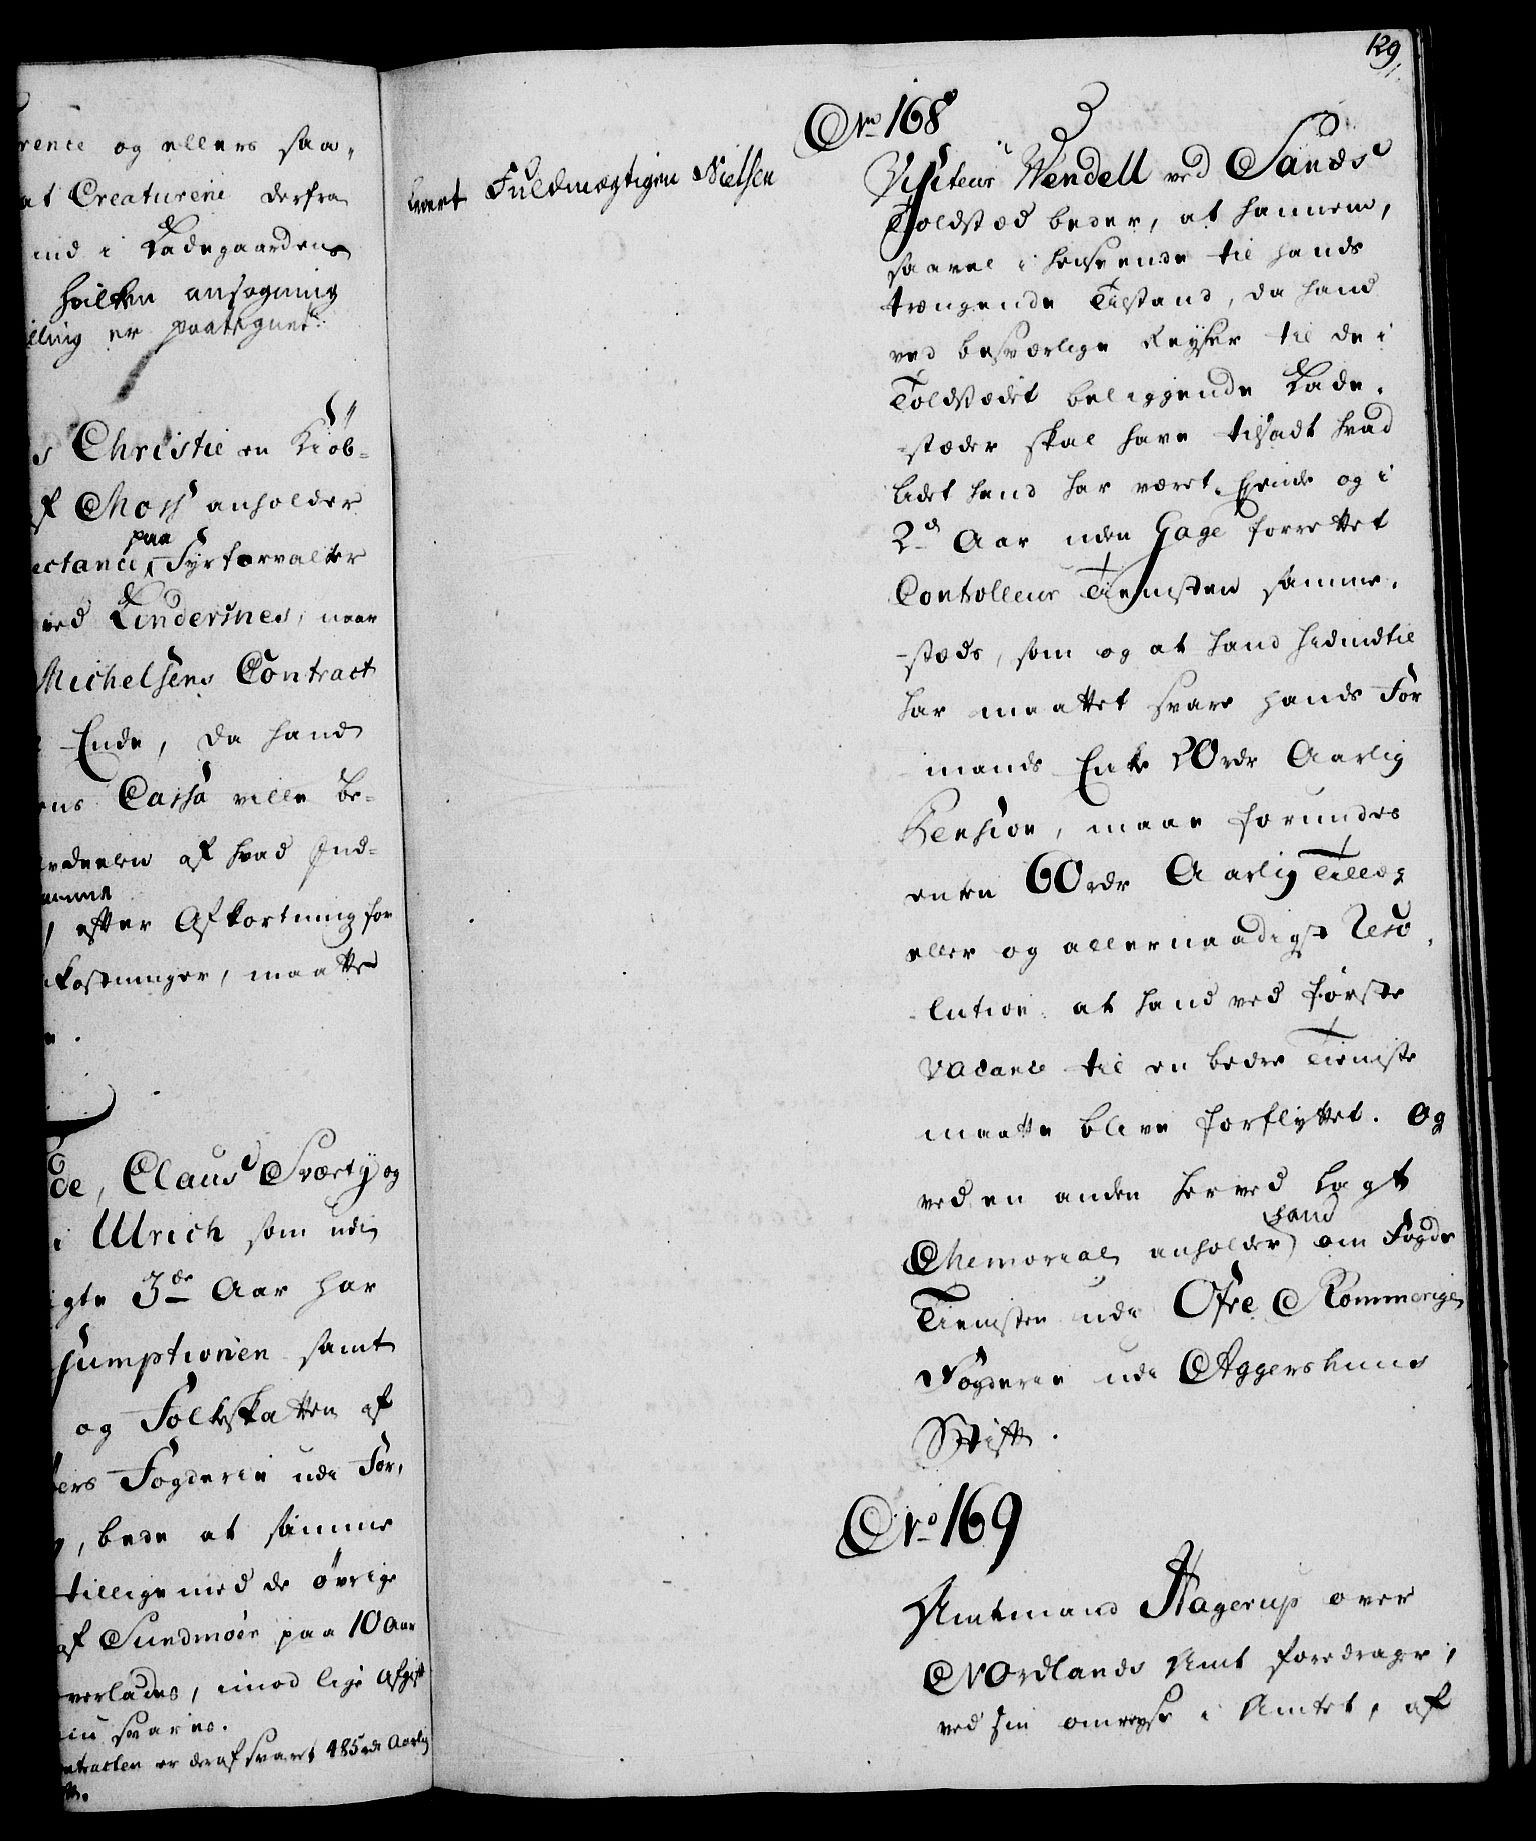 rence og ellers saa-
at Creaturene derfra
ind i Ladegaarden
hvilken ansøgning
lling er paategnet
s Christie en Kiøb-
f Moss anholder
ectance paa Fyrforvalter
ved Lindersnes, naar
Michelsens Contract
Ende, da hand
ens Cassa ville be-
rdeelen af hvad Ind-
amme
efter Afkortning for
kostninger, maatte
de, Claus Sværty og
i Ulrich som udi
igte 3de Aar har
sumptionen samt
og Folkeskatten af
ers Fogderie udi For-
, bede at samme
tilligemed de øvrige
af Sundmøer paa 10 Aar
verlades, imod lige Afgift
svares.
ntracten er deraf svaret 485 rdr Aarlig
129
No 168
leveret Fuldmægtigen Nielsen
Visiteur Wendell ved Sands
Toldsted beder, at hannem,
saavel i henseende til hands
trængende Tilstand, da hand
ved besværlige Reyser til de i
Toldstedet beliggende Lade-
-stæder skal have tilsadt hvad
lidet hand har været Eyende og i
2d Aar uden Gage forrettet
Controlleur Tienisten samme-
-steds, som og at hand hidindtil
har maattet svare hands For
mands Enke 20 rdr Aarlig
Pension, maae forundes
enten 60 rdr Aarlig Tillæg
eller og allernaadigst Reso-
-lution at hand ved første
Vacance til en bedre Tieniste
maatte blive forflyttet. Og
ved en anden herved lagt
Memorial anholder hand om Fogde
Tienisten udi Øfre Rommerige
Fogderie udi Aggershuus
Stift.
No 169
Amtmand Hagerup over
Nordlands Amt foredrager,
ved sin omreyse i Amtet, af